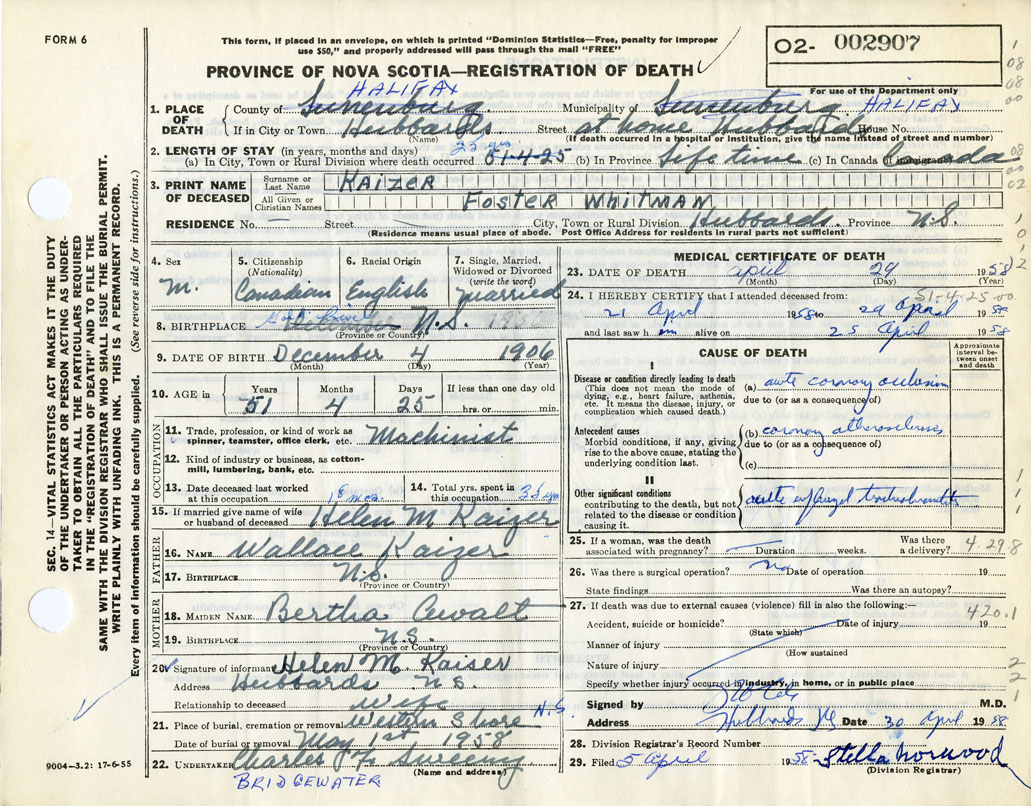 FORM 6
This form, if placed in an envelope, on which is printed "Dominion Statistics—Free, penalty for improper
use $50," and properly addressed will pass through the mail "FREE"
O2- 002907
For use of the Department only
PROVINCE OF NOVA SCOTIA—REGISTRATION OF DEATH
HALIFAX
1. PLACE OF DEATH County of Lunenburg Municipality of Lunenburg HALIFAX
If in City or Town Hubbards Street at home Hubbards House No.
(Name) (If death occurred in a hospital or institution, give the name instead of street and number)
2. LENGTH OF STAY (in years, months and days)
(a) In City, Town or Rural Division where death occurred 51-4-25 (b) In Province Life time (c) In Canada (if immigrant) Canada
3. PRINT NAME OF DECEASED Surname or Last Name KAIZER
All Given or Christian Names FOSTER WHITMAN
RESIDENCE No. Street City, Town or Rural Division Hubbards. Province N.S.
(Residence means usual place of abode. Post Office Address for residents in rural parts not sufficient)
4. Sex M.
5. Citizenship (Nationality) Canadian
6. Racial Origin English
7. Single, Married, Widowed or Divorced (write the word) Married
8. BIRTHPLACE N.S.
(Province or Country)
9. DATE OF BIRTH December 4 1906
(Month) (Day) (Year)
10. AGE in Years 51 Months 4 Days 25 If less than one day old hrs. or min.
OCCUPATION
11. Trade, profession, or kind of work as spinner, teamster, office clerk, etc. Machinist
12. Kind of industry or business, as cotton-mill, lumbering, bank, etc.
13. Date deceased last worked at this occupation
14. Total yrs. spent in this occupation
15. If married give name of wife or husband of deceased Helen M Kaizer
FATHER
16. NAME Wallace Kaizer
17. BIRTHPLACE N.S.
(Province or Country)
MOTHER
18. MAIDEN NAME Bertha Ewalt
19. BIRTHPLACE N.S.
(Province or Country)
20 Signature of informant Helen M. Kaiser
Address Hubbards N.S.
Relationship to deceased Wife
21. Place of burial, cremation or removal Western Shore N.S.
Date of burial or removal May 1st 1958
22. UNDERTAKER Charles F. Sweeny
(Name and address)
BRIDGEWATER
MEDICAL CERTIFICATE OF DEATH
23. DATE OF DEATH April 29 1958
(Month) (Day) (Year)
51-4-25-00
24. I HEREBY CERTIFY that I attended deceased from:
21 April 1958 to 29 April 1958
and last saw him alive on 25 April 1958
CAUSE OF DEATH
Approximate interval between onset and death
I
Disease or condition directly leading to death
(This does not mean the mode of dying, e.g., heart failure, asthenia, etc. It means the disease, injury, or complication which caused death.)
(a) acute coronary occlusion
due to (or as a consequence of)
Antecedent causes
Morbid conditions, if any, giving rise to the above cause, stating the underlying condition last.
(b) coronary atherosclerosis
due to (or as a consequence of)
(c)
II
Other significant conditions
contributing to the death, but not related to the disease or condition causing it.
acute
25. If a woman, was the death associated with pregnancy? Duration weeks. Was there a delivery?
4.29.8
26. Was there a surgical operation? No Date of operation 19
State findings Was there an autopsy?
27. If death was due to external causes (violence) fill in also the following:—
420.1
Accident, suicide or homicide? Date of injury 19
(State which)
Manner of injury
(How sustained
Nature of injury
Specify whether injury occurred in industry, in home, or in public place
Signed by M.D.
Address Hubbards Date 30 April 1958
28. Division Registrar's Record Number
29. Filed 5 April 1958 Stella Norwood
(Division Registrar)
SEC. 14—VITAL STATISTICS ACT MAKES IT THE DUTY
OF THE UNDERTAKER OR PERSON ACTING AS UNDER-
TAKER TO OBTAIN ALL THE PARTICULARS REQUIRED
IN THE "REGISTRATION OF DEATH" AND TO FILE THE
SAME WITH THE DIVISION REGISTRAR WHO SHALL ISSUE THE BURIAL PERMIT.
WRITE PLAINLY WITH UNFADING INK. THIS IS A PERMANENT RECORD.
Every item of information should be carefully supplied. (See reverse side for instructions.)
9004—3.2: 17-6-55